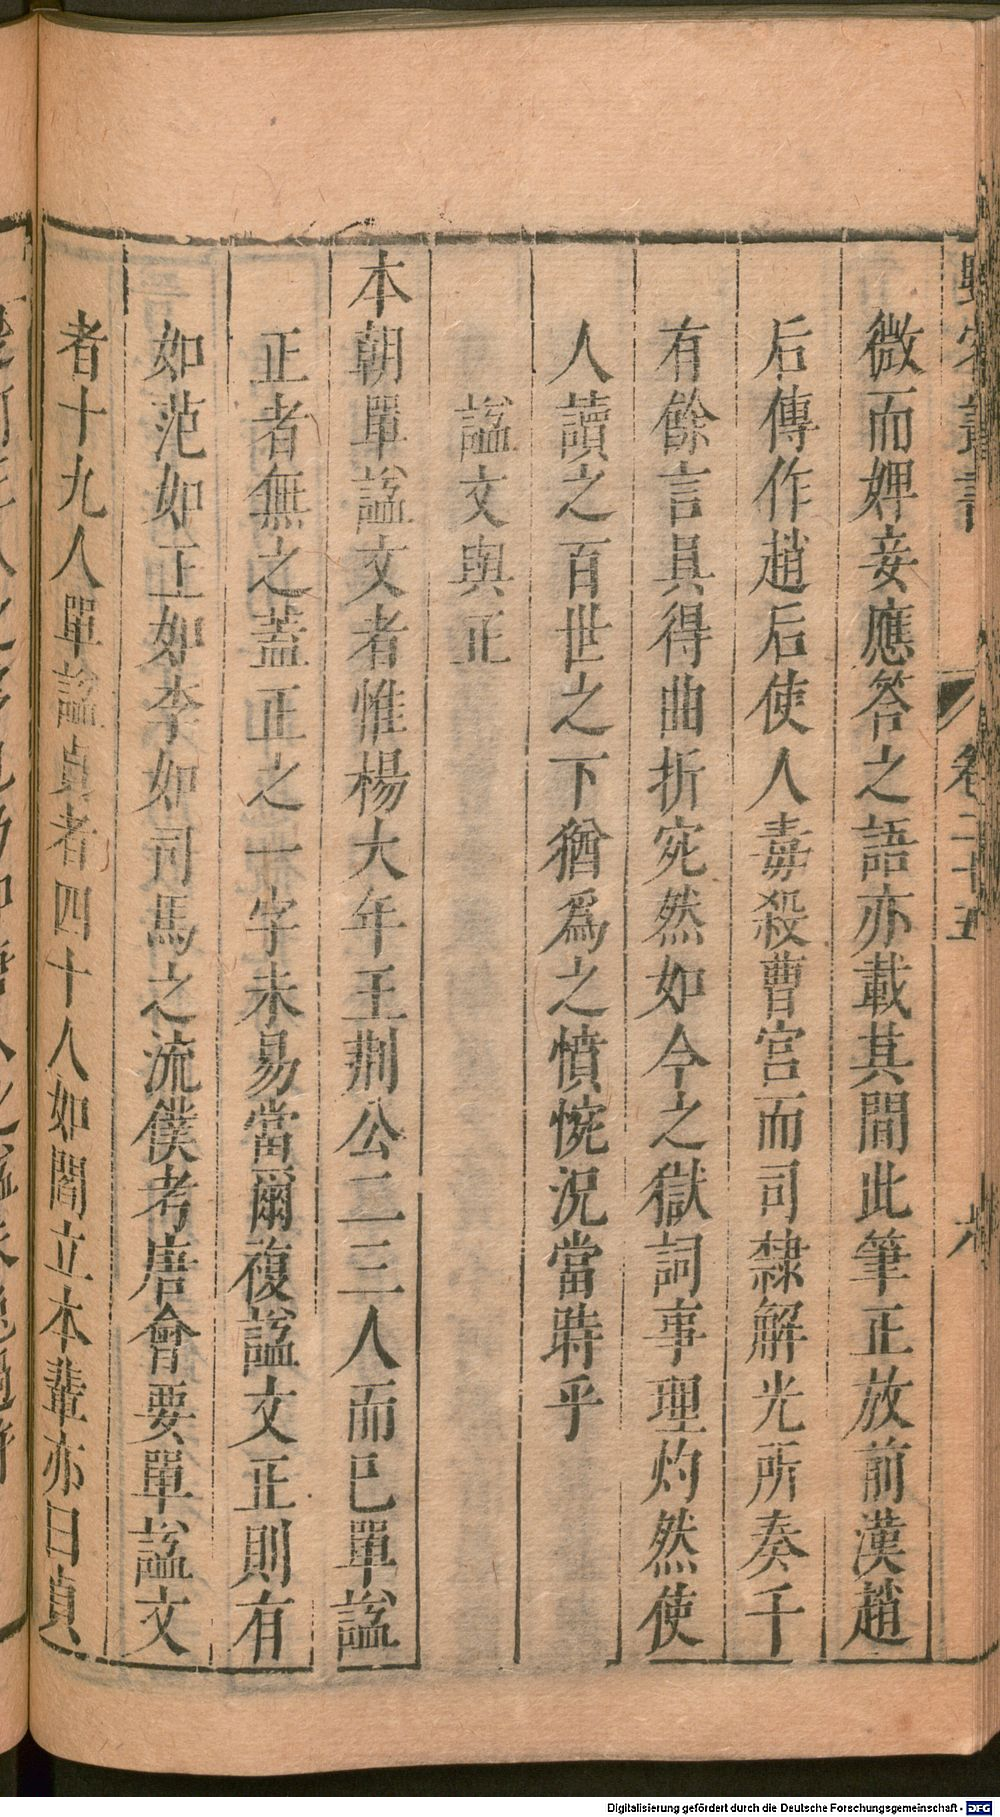 野客叢書 卷二十五
微而婢妾應答之語亦載其間此筆正放前漢趙
后傳作趙后使人毒殺曹宫而司隸解光所奏千
有餘言具得曲折宛然如今之獄詞事理灼然使
人讀之百世之下猶爲之憤惋況當時乎
諡文與正
本朝單諡文者惟楊大年王荆公二三人而已單諡
正者無之蓋正之一字未易當爾複諡文正則有
如范如王如李如司馬之流僕考唐會要單諡文
者十九人單諡貞者四十人如閻立本輩亦曰貞
Digitalisierung gefördert durch die Deutsche Forschungsgemeinschaft - DFG